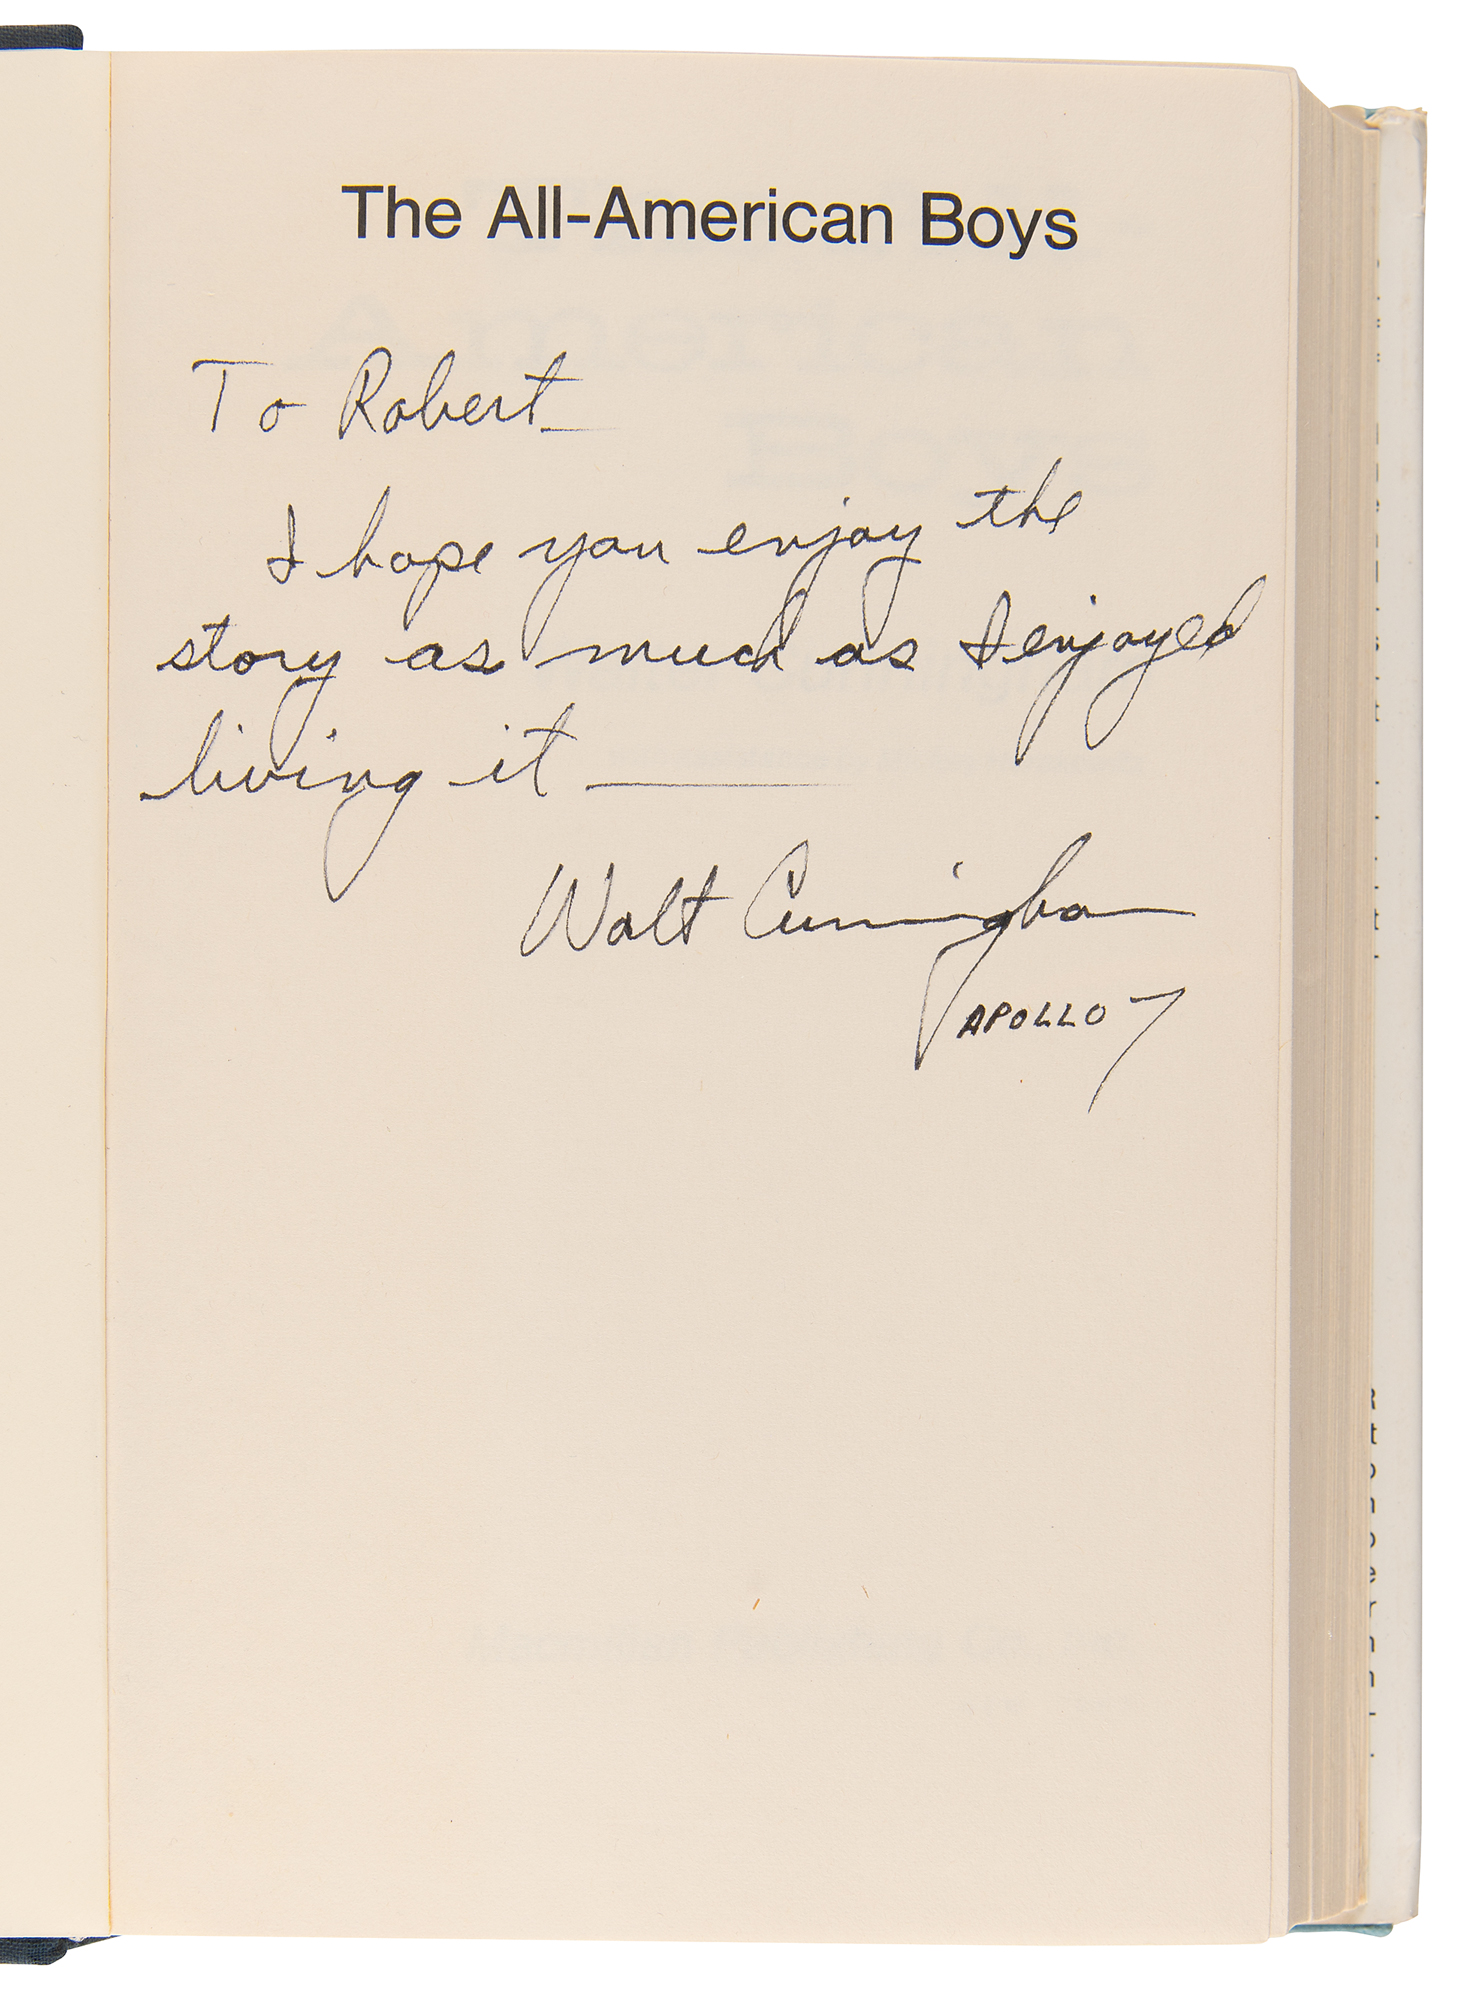 The All-American Boys
To Robert—
I hope you enjoy the
story as much as I enjoyed
living it —
Walt Cunningham
APOLLO 7